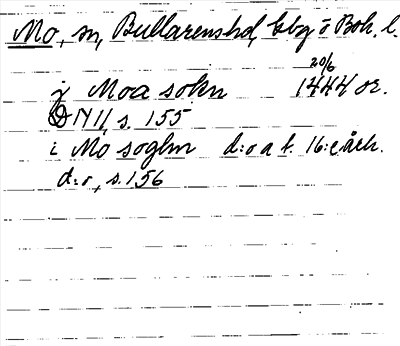 Mo, sn, Bullarens hd, Gbg o Boh. l.
20/6
j Moa sokn 1444 or.
DN II, s. 155
i Mo soghn d:o a f. 16:e årh.
d:o, s. 156